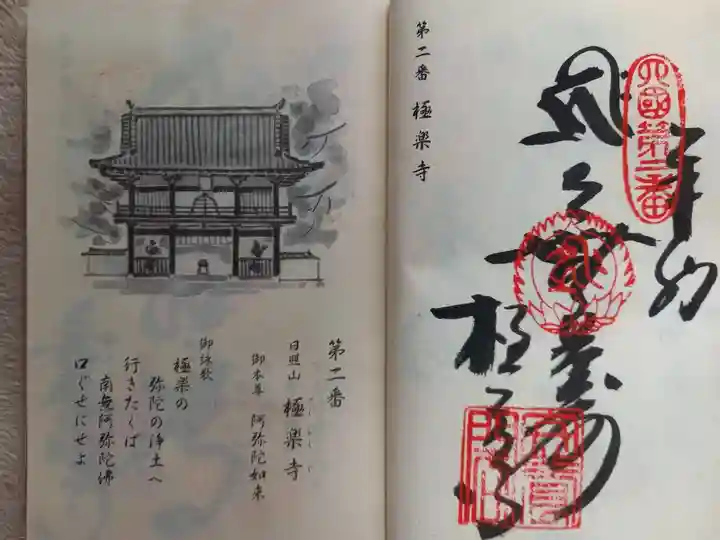 第二番 極楽寺
奉納
四國第二番
極楽寺
第二番
日照山 極楽寺
ごくらくじ
御本尊 阿弥陀如来
御詠歌
極楽の
弥陀の浄土へ
行きたくば
南無阿弥陀佛
口ぐせにせよ